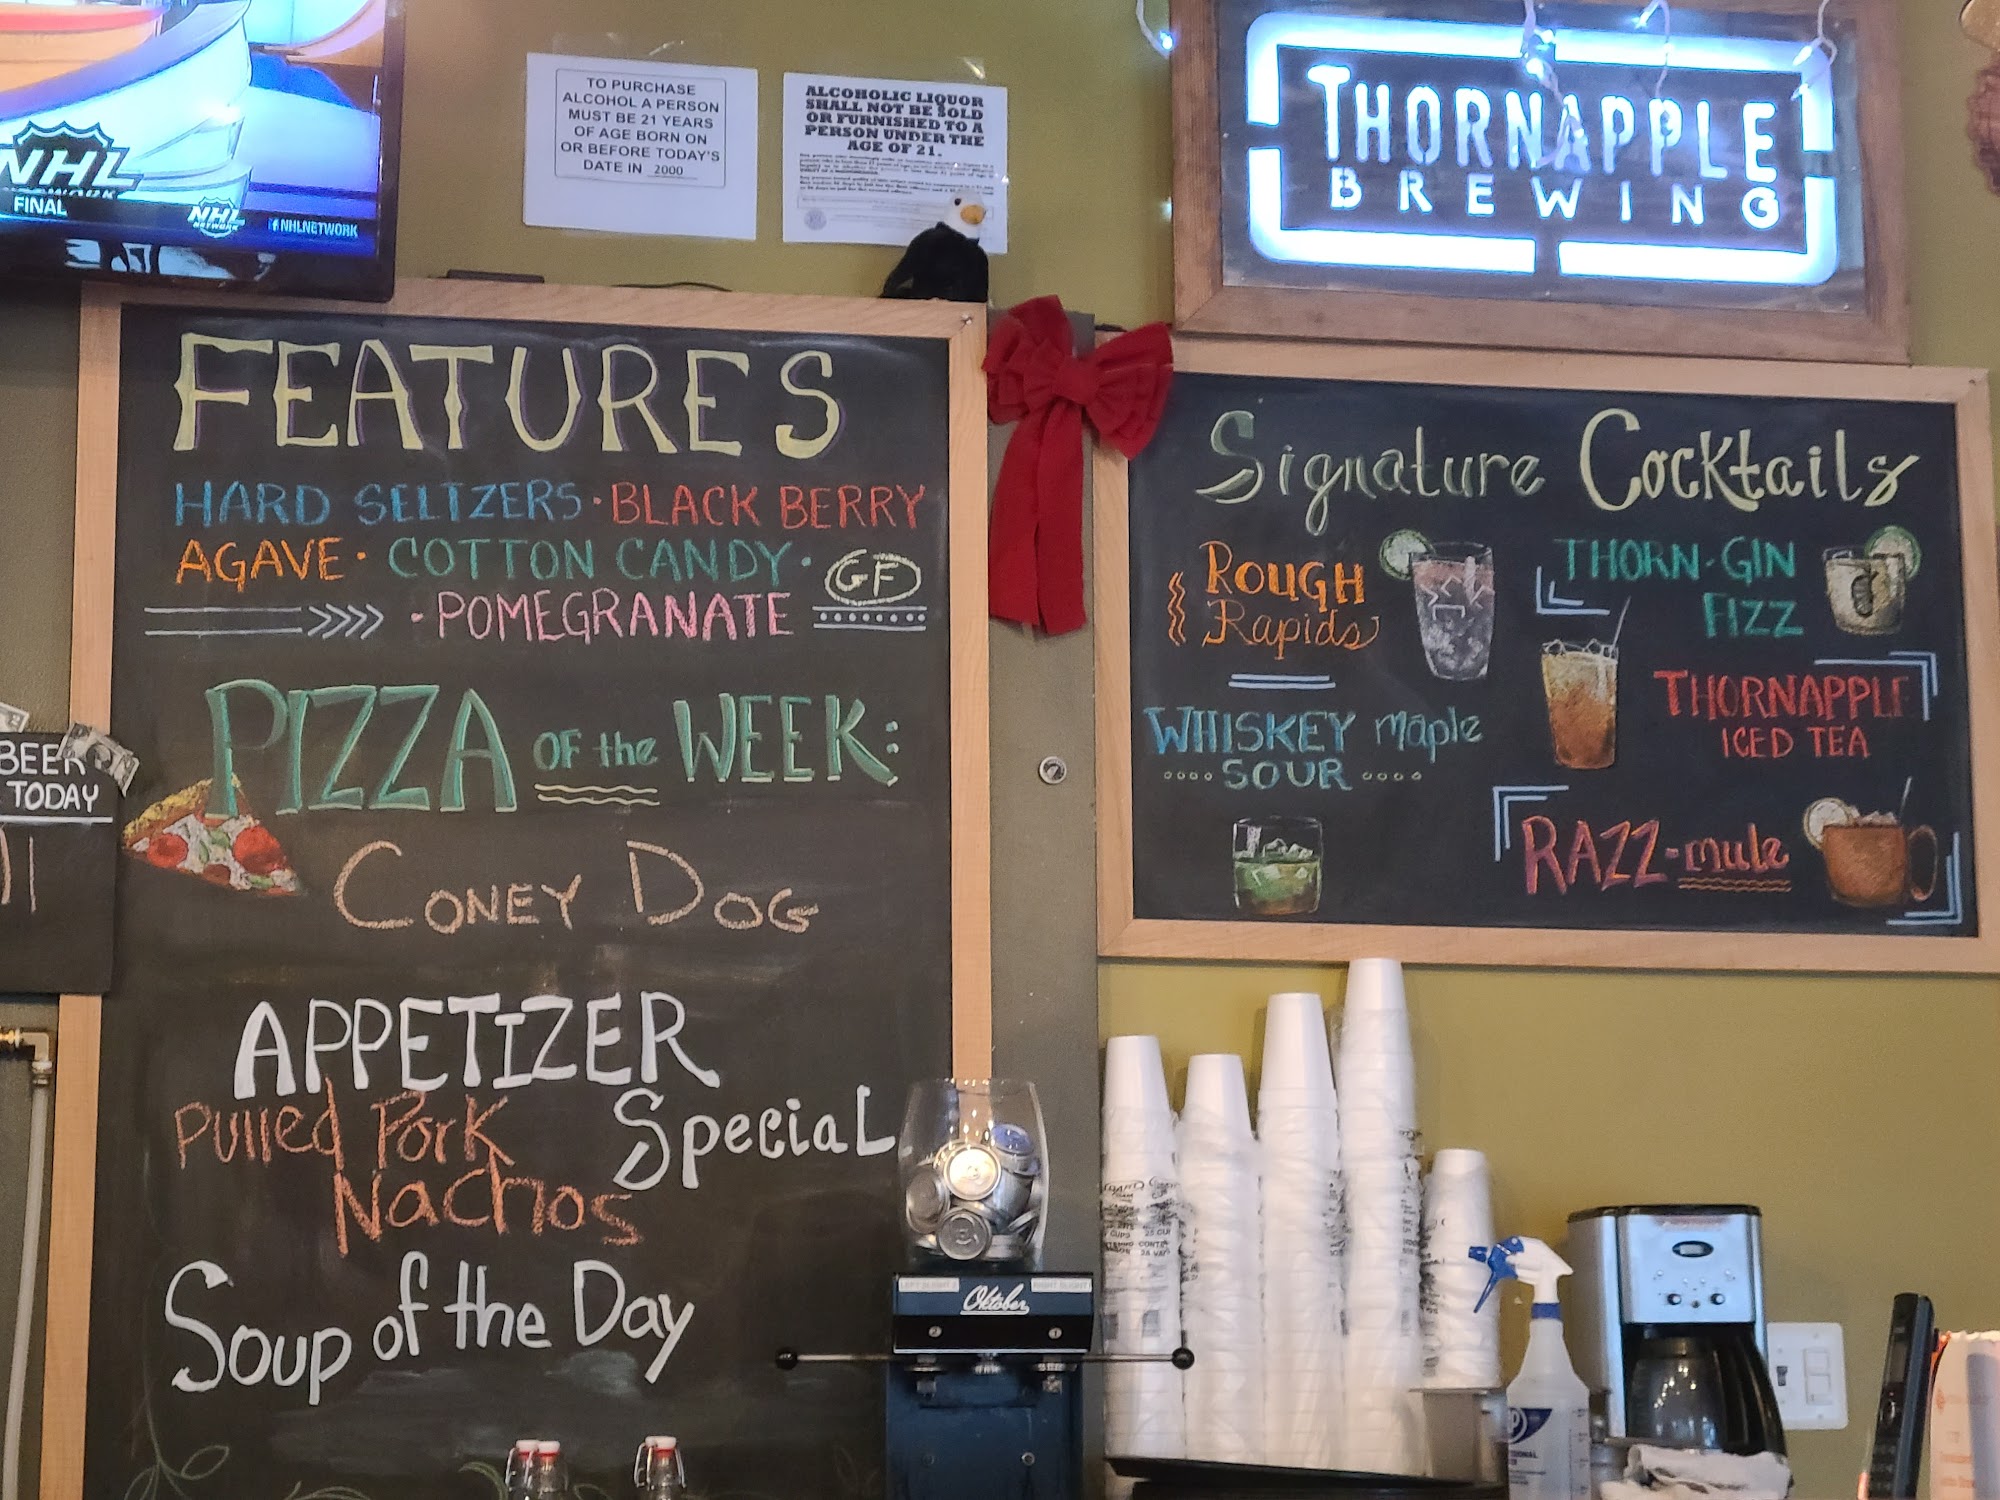 NHL
NETWORK
FINAL
NHL
NETWORK
NHLNETWORK
TO PURCHASE
ALCOHOL A PERSON
MUST BE 21 YEARS
OF AGE BORN ON
OR BEFORE TODAY'S
DATE IN 2000
ALCOHOLIC LIQUOR
SHALL NOT BE SOLD
OR FURNISHED TO A
PERSON UNDER THE
AGE OF 21.
THORNAPPLE
BREWING
FEATURES
HARD SELTZERS · BLACK BERRY
AGAVE · COTTON CANDY · GF
· POMEGRANATE
PIZZA OF the WEEK:
CONEY DOG
APPETIZER
SPeciaL
Pulled Pork
Nachos
Soup of the Day
BEER
TODAY
Signature Cocktails
ROUGH
Rapids
THORN-GIN
FIZZ
WHISKEY maple
SOUR
THORNAPPLE
ICED TEA
RAZZ-mule
Oktober
2 1